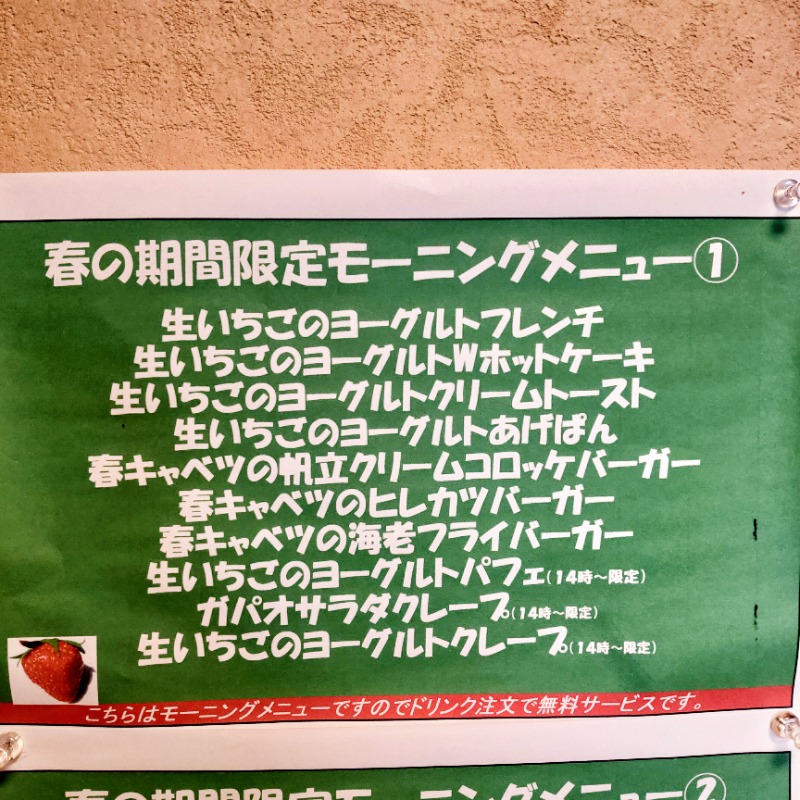 春の期間限定モーニングメニュー①
生いちごのヨーグルトフレンチ
生いちごのヨーグルトWホットケーキ
生いちごのヨーグルトクリームトースト
生いちごのヨーグルトあげぱん
春キャベツの帆立クリームコロッケバーガー
春キャベツのヒレカツバーガー
春キャベツの海老フライバーガー
生いちごのヨーグルトパフェ(14時~限定)
ガパオサラダクレープ(14時~限定)
生いちごのヨーグルトクレープ(14時~限定)
こちらはモーニングメニューですのでドリンク注文で無料サービスです。
春の期間限定モーニングメニュー②